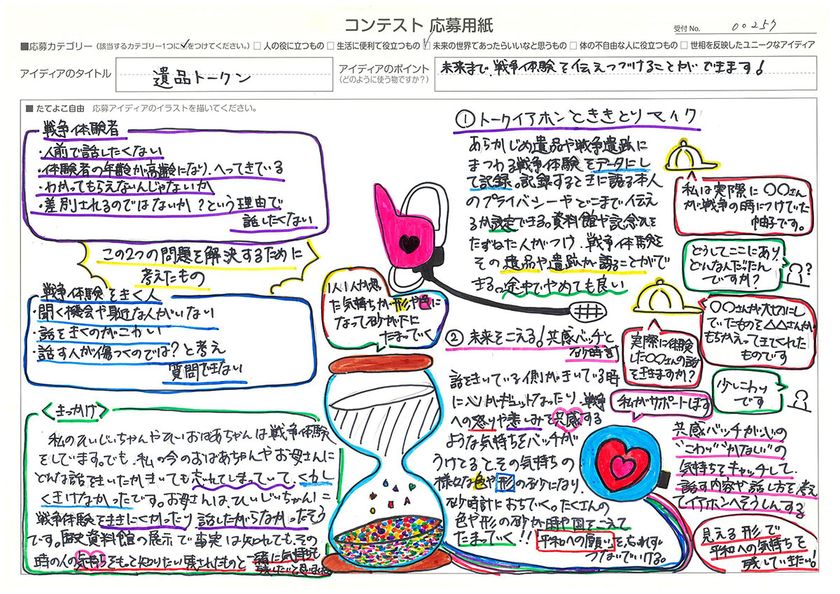 コンテスト 応募用紙
受付No. 00257
■応募カテゴリー (該当するカテゴリー1つに✓をつけてください。) □ 人の役に立つもの □ 生活に便利で役立つもの ☑ 未来の世界であったらいいなと思うもの □ 体の不自由な人に役立つもの □ 世相を反映したユニークなアイディア
アイディアのタイトル
遺品トークン
アイディアのポイント
(どのように使う物ですか?)
未来まで、戦争体験を伝えつづけることができます!
■ たてよこ自由 応募アイディアのイラストを描いてください。
戦争体験者
・人前で話したくない
・体験者の年齢が高齢になり、へってきている
・わかってもらえないんじゃないか
・差別されるのではないか?という理由で
話したくない
この2つの問題を解決するために
考えたもの
戦争体験をきく人
・聞く機会や身近な人がいない
・話をきくのがこわい
・話す人が傷つくのでは?と考え
質問できない
<きっかけ>
私のひいじいちゃんやひいおばあちゃんは戦争体験
をしています。でも、私の今のおばあちゃんやお母さんに
どんな話をきいたかきいても忘れてしまっていて、くわし
くきけなかったです。お母さんはひいじいちゃんに
戦争体験をききにくかったり話したがらなかったそう
です。歴史資料館の展示で事実は知れても、その
時の人の気持ちをもって知りたい残されたものと
①トークイアホンとききとりマイク
あらかじめ遺品や戦争遺跡に
まつわる戦争体験をデータにし
て記録。記録するときに語る本人
のプライバシーやどこまで伝え
るか設定できる。資料館や記念公を
たずねた人がつけ、戦争体験を
その遺品や遺跡が語ることがで
きる。途中でやめても良い
私は実際に〇〇さん
が戦争の時につけていた
帽子です。
どうしてここにあり、
どんな人だったん
ですか?
〇〇さんが大切にし
ていたものを△△さんが
もちかえってきてくれた
ものです
実際に体験
した〇〇さんの話
をききますか?
少しこわい
です
私がサポートします
1人1人が思っ
た気持ちが形や色に
なって砂が下に
たまっていく
② 未来をこえる!共感バッチと
砂時計
話をきいている側がきいている時
に心がギュッとなったり、戦争
への怒りや悲しみを共感する
ような気持ちをバッチが
うけとるとその気持ちの
様々な色や形の砂になり、
砂時計におちていく。たくさんの
色や形の砂が時や国をこえて
たまっていく!!
平和への願いを忘れずに
つなげていける。
共感バッチが心の
"こわい""かなしい"の
気持ちをキャッチして
話す内容や話し方を考え
てイアホンへそうしんする
見える形で
平和への気持ちを
残していきたい!